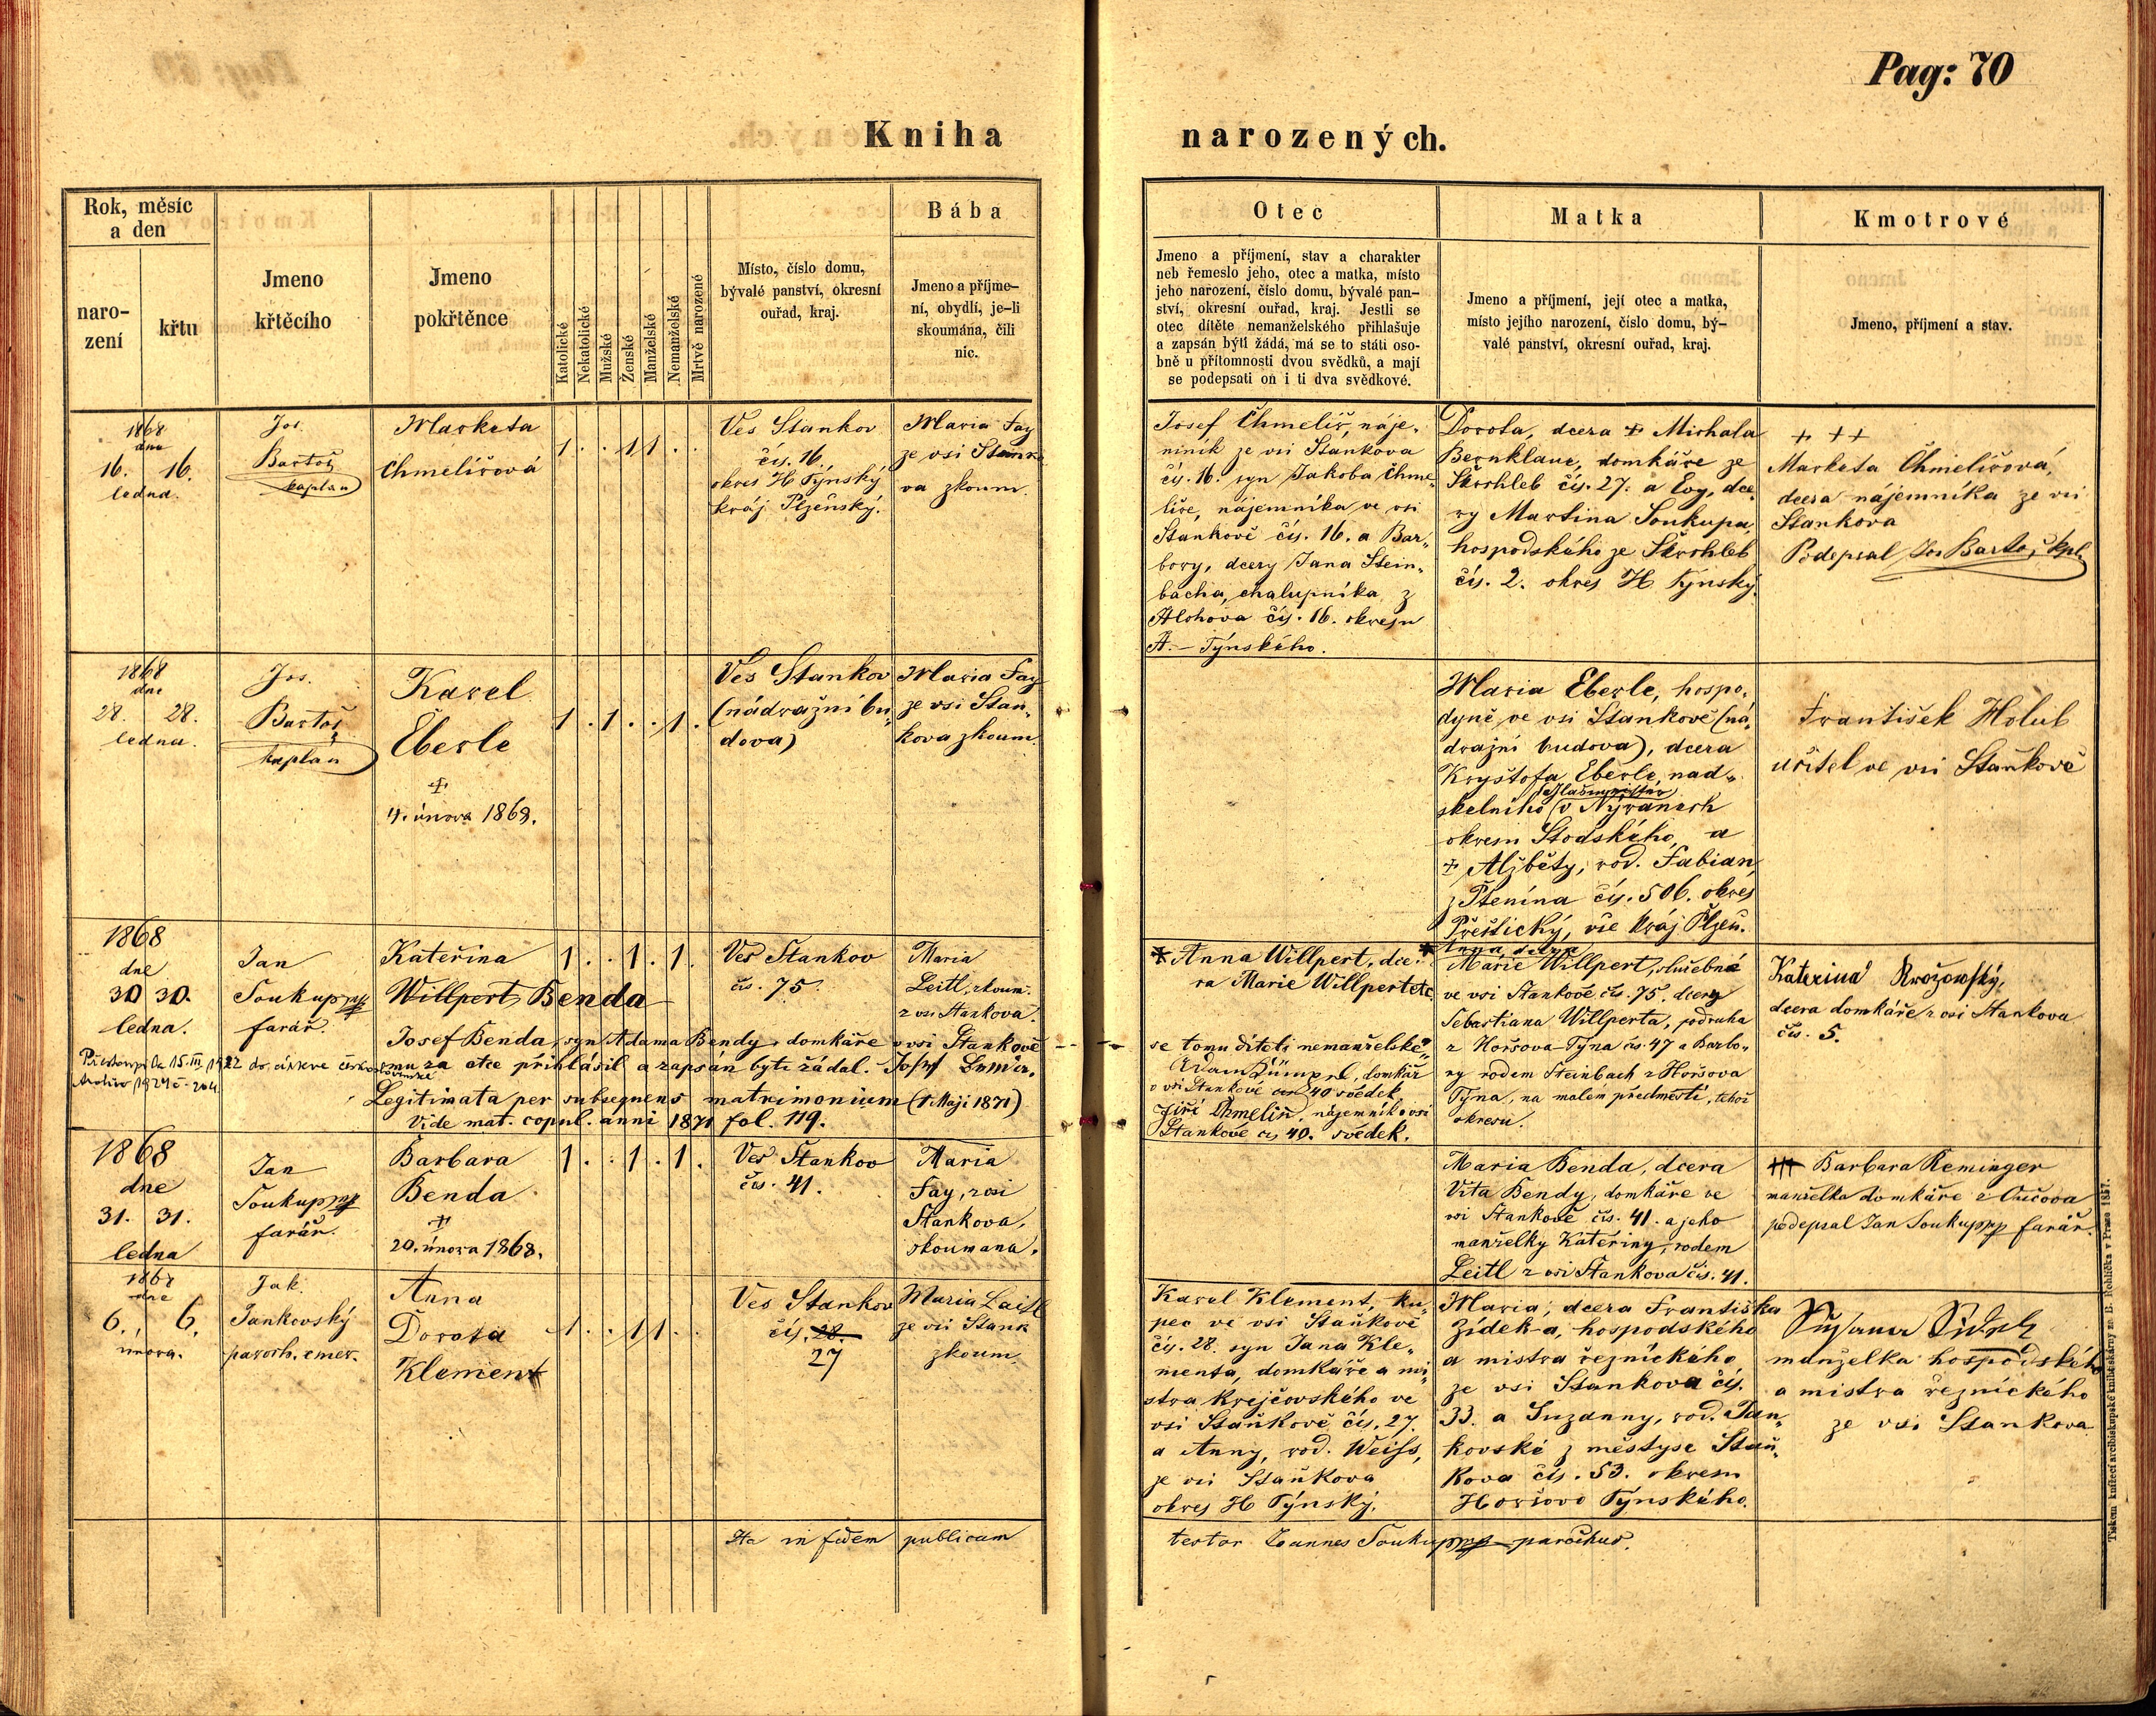 Pag: 70
Kniha narozených.
Rok, měsíc
a den
naro-
zení
křtu
Jmeno
křtěcího
Jmeno
pokřtěnce
Katolické
Nekatolické
Mužské
Ženské
Manželské
Nemanželské
Mrtvě narozené
Místo, číslo domu,
bývalé panství, okresní
ouřad, kraj.
Bába
Jmeno a příjme-
ní, obydlí, je-li
skoumána, čili
nic.
Otec
Jmeno a příjmení, stav a charakter
neb řemeslo jeho, otec a matka, místo
jeho narození, číslo domu, bývalé pan-
ství, okresní ouřad, kraj. Jestli se
otec dítěte nemanželského přihlašuje
a zapsán býti žádá, má se to státi oso-
bně u přítomnosti dvou svědků, a mají
se podepsati on i ti dva svědkové.
Matka
Jmeno a příjmení, její otec a matka,
místo jejího narození, číslo domu, bý-
valé panství, okresní ouřad, kraj.
Kmotrové
Jmeno, příjmení a stav.
1868
dne
16. 16.
ledna.
Jos.
Bartoš
kaplan
Marketa
Chmelířová
1 . . 1 1 . .
Ves Stankov
čís. 16.
okres H Týnský
kráj Plzeňský.
Maria Fay
ze vsi Stanko
va zkoum.
Josef Chmelíř, náje-
mník ze vsi Stankova
čís. 16. syn Jakoba Chme-
líře, nájemníka ve vsi
Stankově čís. 16. a Bar-
bory, dcery Jana Stein-
bacha, chalupníka z
Hlohova čís. 16. okresu
H.- Týnského.
Dorota, dcera + Michala
Bernklaue, domkáře ze
Škrchleb čís. 27. a Evy, dce-
ry Martina Soukupa,
hospodského ze Škrchleb
čís. 2. okres H Týnský.
+ ++
Marketa Chmelířová,
dcera nájemníka ze vsi
Stankova
Podepsal Jos Bartoš, kpl.
1868
dne
28. 28.
ledna.
Jos.
Bartoš
kaplán
Karel
Eberle
+
4. února 1868.
1 . 1 . . 1 .
Ves Stankov
(nádražní bu-
dova)
Maria Fay
ze vsi Stan-
kova zkoum.
Maria Eberle, hospo-
dyně ve vsi Stankově (ná-
dražní budova), dcera
Kryštofa Eberle, nad-
skelního (v Nýřanech
okresu Stodského, a
+ Alžběty, rod. Fabian
z Ptenína čís. 506. okres
Přeštický, vše kráj Plzeň.
František Holub
učitel ve vsi Staňkově
1868
dne
30 30.
ledna.
Jan
Soukup
farář.
Kateřina
Willpert, Benda
1 . . 1 . 1 .
Ves Stankov
čís. 75.
Maria
Leitl, zkoum.
z vsi Stankova.
* Anna Willpert, dce-
ra Marie Willpert etc.
* Anna dcera
Marie Willpert, služebné
ve vsi Stankově čís. 75. dcery
Sebastiana Willperta, podruha
z Horšova Týna čís. 47 a Barbo-
ry rodem Steinbach z Horšova
Týna, na malém předměstí, tehož
okresu.
Katerina
dcera domkáře z vsi Stankova
čís. 5.
Josef Benda, syn Adama Bendy, domkáře v vsi Stankově se tomu dítěti nemanželské-
mu za otce přihlásil a zapsán byti žádal.
domkář
v vsi Stankově čís 40 svědek
Jiří Chmelíř, nájemník v vsi
Stankově čís 40. svědek.
Legitimata per subsequens matrimonium (1. Maji 1871)
Vide mat. copul. anni 1871 fol. 119.
1868
dne
31. 31.
ledna
Jan
Soukup
farář.
Barbara
Benda
+
20. února 1868.
1 . . 1 . 1 .
Ves Stankov
čís. 41.
Maria
Fay, z vsi
Stankova,
skoumana.
Maria Benda, dcera
Víta Bendy, domkáře ve
vsi Stankově čís. 41. a jeho
manželky Kateřiny, rodem
Leitl z vsi Stankova čís. 41.
+++ Barbara Reminger
manželka domkáře z Oučova
podepsal Jan Soukup farář.
1868
dne
6. 6.
února.
Jak.
Jankovský
paroch. emer.
Anna
Dorota
Klement
1 . . 1 1 . .
Ves Stankov
čís. 28.
27
Maria Laitl
ze vsi Stank
zkoum.
Karel Klement, ku-
pec ve vsi Staňkově
čís. 28. syn Jana Kle-
menta, domkáře a mi-
stra krejčovského ve
vsi Staňkově čís. 27.
a Anny, rod. Weiss,
ze vsi Staňkova
okres H Týnský.
Maria, dcera Františka
Zídek-a, hospodského
a mistra řeznického
ze vsi Stankova čís.
33. a Suzanny, rod. Jan-
kovské z městyse Staň-
kova čís. 53. okresu
Horšovo Týnského.
manželka hospodského
a mistra řeznického
ze vsi Stankova
Ita in fidem publicam testor Joannes Soukup parochus.
Tiskem knížecí arcibiskupské knihtiskárny za B. Rohlíčka v Praze 1857.